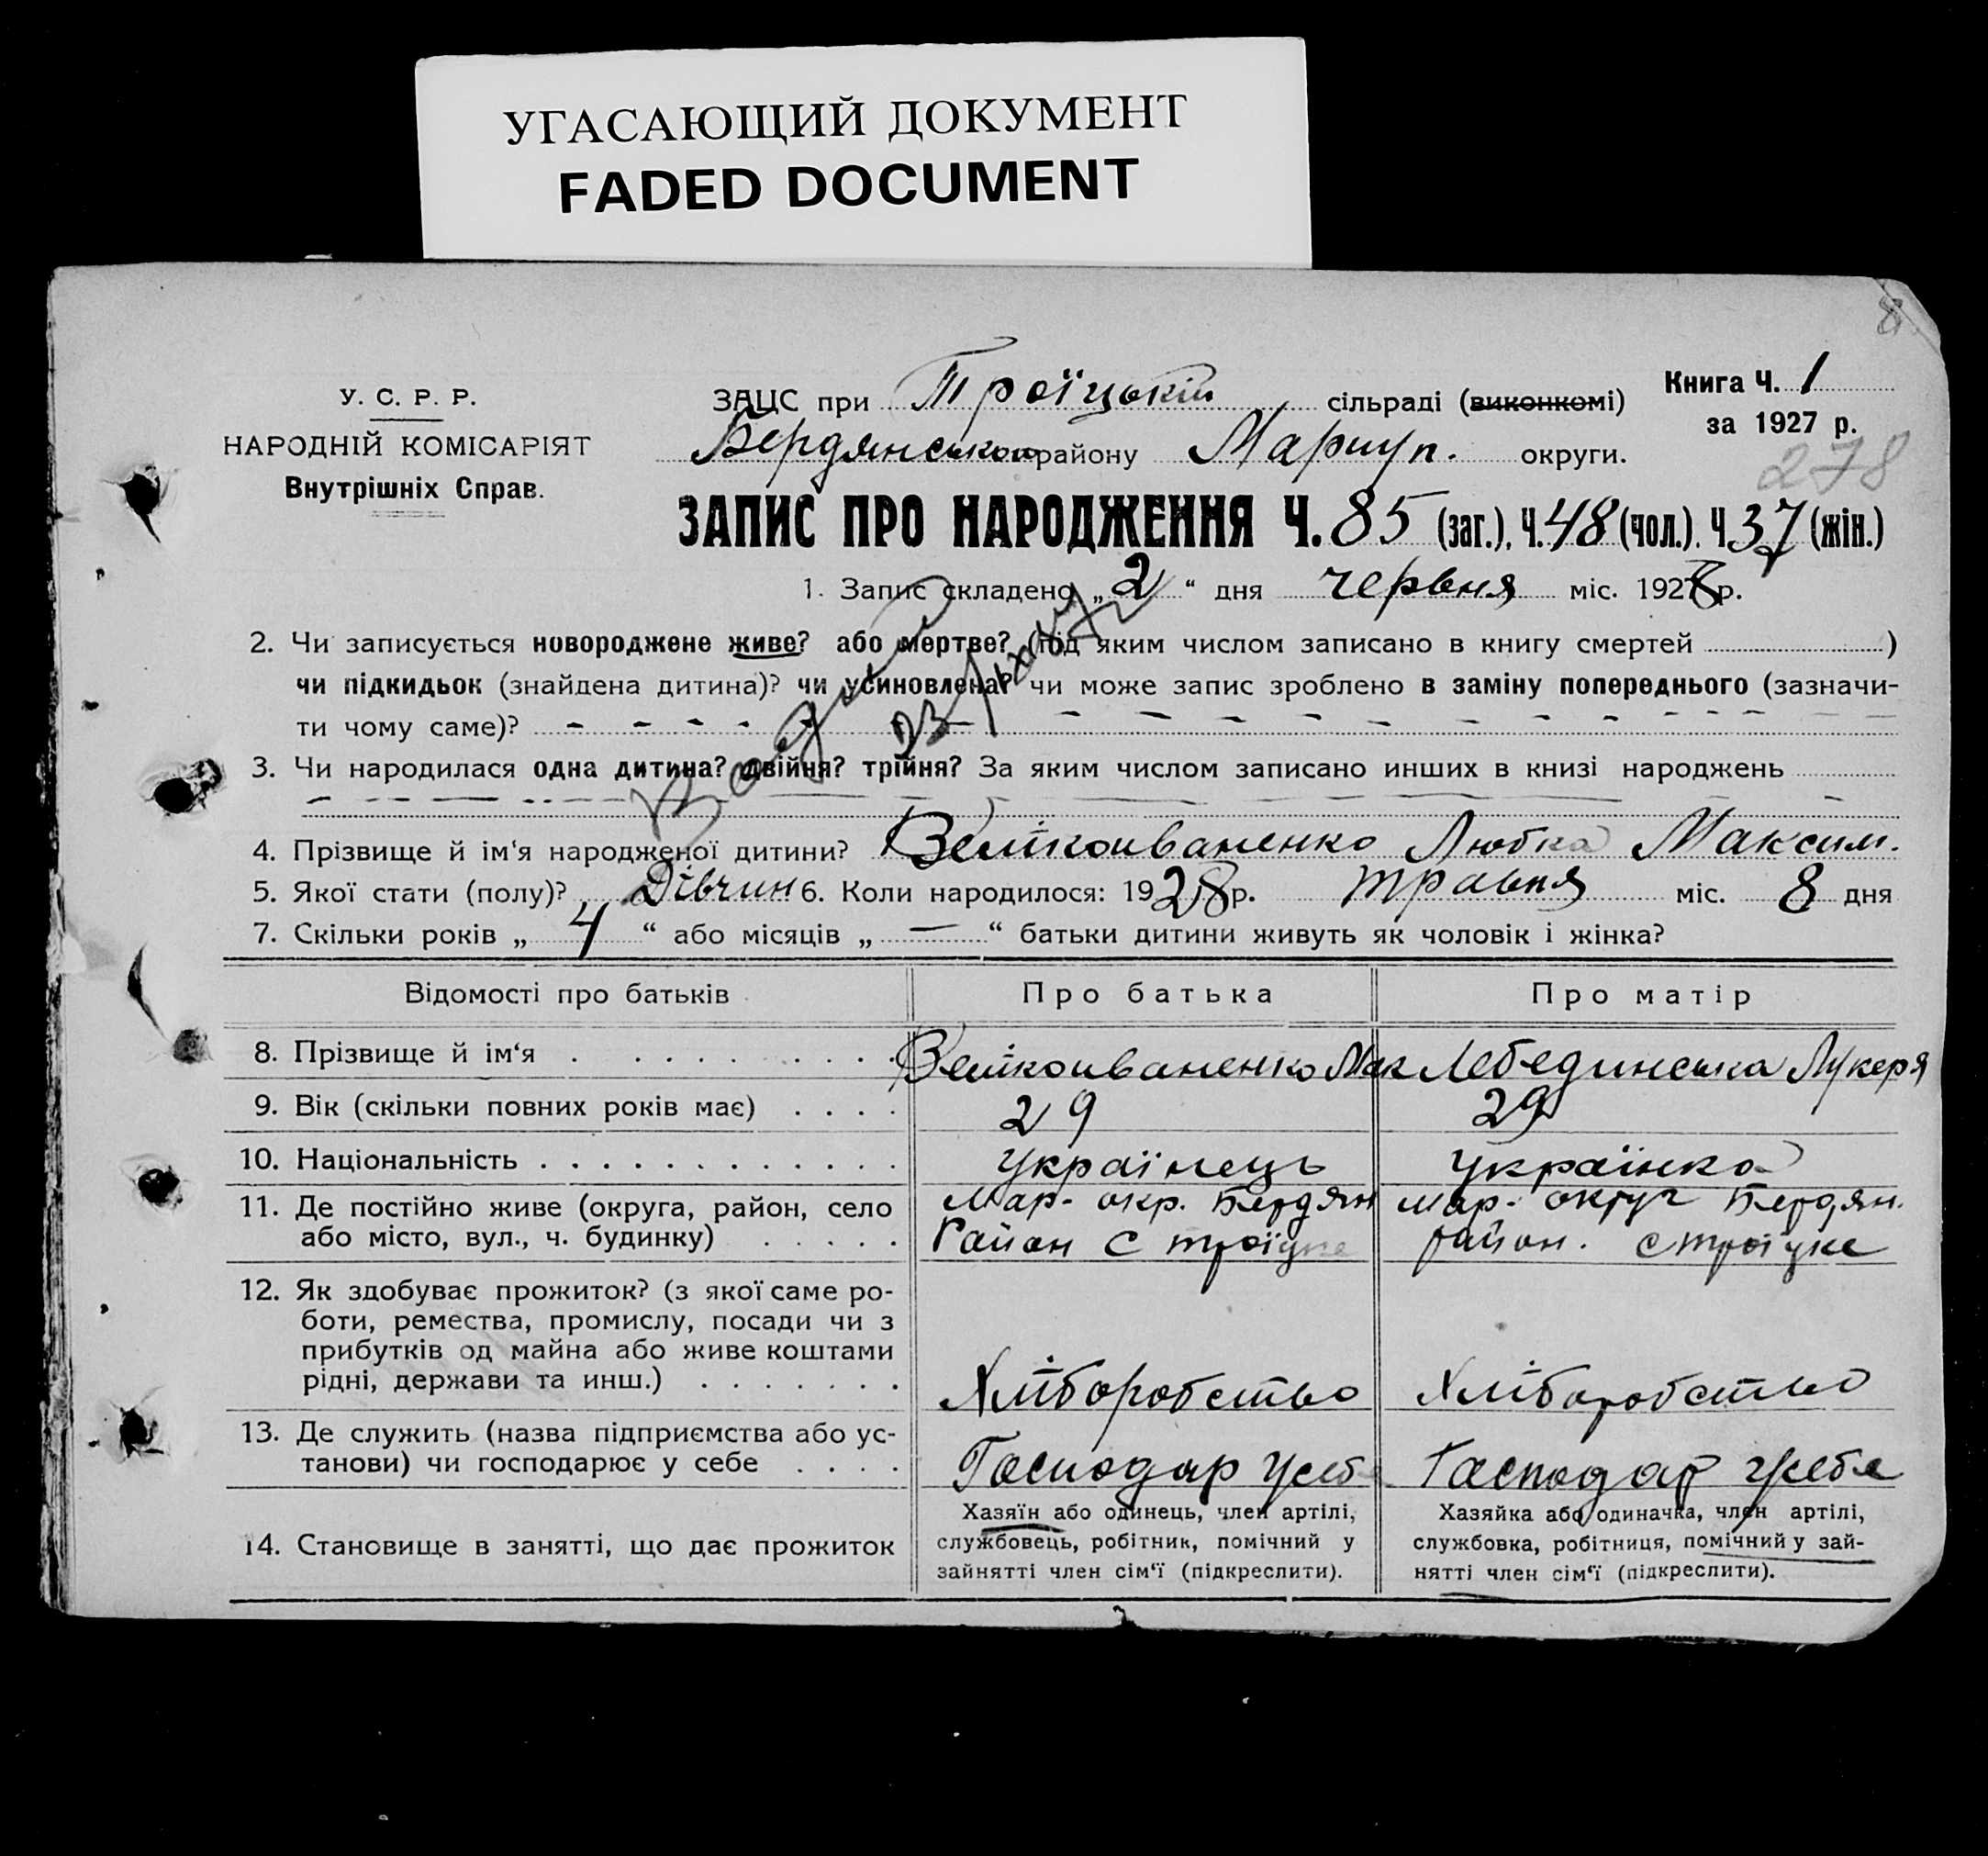 УГАСАЮЩИЙ ДОКУМЕНТ
FADED DOCUMENT
8
У. С. Р. Р.
НАРОДНІЙ КОМІСАРІЯТ
Внутрішніх Справ.
ЗАЦС при Троїцькій сільраді (виконкомі)
Книга Ч. 1
за 1927 р.
Бердянського району Маріуп. округи.
278
ЗАПИС ПРО НАРОДЖЕННЯ Ч. 85 (заг.), Ч. 48 (чол.). Ч 37 (жін.)
1. Запис складено „2“ дня червня міс. 1928 р.
2. Чи записується новороджене живе? або мертве? (під яким числом записано в книгу смертей )
чи підкидьок (знайдена дитина)? чи усиновлена? чи може запис зроблено в заміну попереднього (зазначи-
ти чому саме)? - - - -
3. Чи народилася одна дитина? двійня? трійня? За яким числом записано инших в книзі народжень
4. Прізвище й ім‘я народженої дитини? Велікоиваненко Любка Максим.
5. Якої стати (полу)? Дівчин 6. Коли народилося: 1928 р. травня міс. 8 дня
7. Скільки років „ 4 “ або місяців „ — “ батьки дитини живуть як чоловік і жінка?
Відомості про батьків Про батька Про матір
8. Прізвище й ім‘я Велікоиваненко Мак Лебединська Лукеря
9. Вік (скільки повних років має) 29 29
10. Національність Українець Українка
11. Де постійно живе (округа, район, село Мар- окр. Бердян Мар- округ Бердян.
або місто, вул., ч. будинку) Район с Троїцке район. с Троїцке
12. Як здобуває прожиток? (з якої саме ро-
боти, ремества, промислу, посади чи з
прибутків од майна або живе коштами
рідні, держави та инш.) Хліборобство Хліборобство
13. Де служить (назва підприємства або ус-
танови) чи господарює у себе Господар усебе Господар усебе
14. Становище в занятті, що дає прожиток
Хазяїн або одинець, член артілі,
службовець, робітник, помічний у
зайнятті член сім‘ї (підкреслити).
Хазяйка або одиначка, член артілі,
службовка, робітниця, помічний у зай-
нятті член сім‘ї (підкреслити).